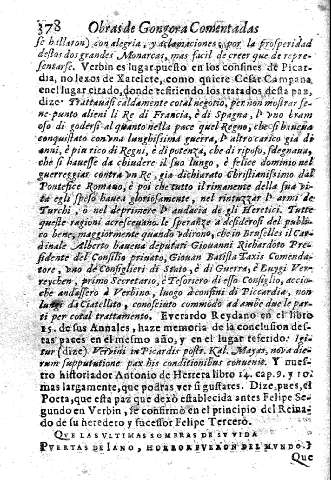 378 Obras de Gongora Comentadas
se hallaron) con alegria, y aclamaciones, por la prosperidad
destos dos grandes Monarcas, mas facil de creer que de repre-
sentarse. Verbin es lugar puesto en los confines de Picar-
dia, no lexos de Xatelete, como quiere Cesar Campana
en el lugar citado, donde refiriendo los tratados desta paz,
dize: Trattauasi caldamente cotal negotio, per non mostrar se-
ne punto alieni li Re di Francia, è di Spagna, l'vno bram
oso di godersi alquanto nella pace quel Regno, che si haueua
conquistato con vna lunghissima guerra, l'altro carico già di
anni, è piu ricco di Regni, è di potenza, che di riposo, sdegnaua,
che si hauesse da chiudere il suo lungo, è felice dominio nel
guerreggiar contra vn Re, gia dichiarato Christianissimo dal
Pontefice Romano, è poi che tutto il rimanente della sua vi-
ta egli speso haueua gloriosamente, nel rintuzzar l'armi de
Turchi, ò nel deprimere l'audacia de gli Heretici. Tutte
queste ragioni acresceuano le speranze a desiderosi del publi-
co bene, maggiormente quando vdirono, che in Brusselles il Car-
dinale Alberto haueua deputati Giouanni Richardoto Presi-
dente del Consilio priuato, Giouan Batista Taxis Comenda-
tore, vno de Consiglieri di Stato, è di Guerra, è Luygi Ver-
reychen, primo Secretario, è Tesoriero di esso Consiglio, accio-
che andassero à Verbino, luogo con fini di Picardia, non
lunge da Ciatelleto, conosciuto commodo ad ambe due le par-
ti per cotal trattamento. Everardo Reydano en el libro
15. de sus Annales, haze memoria de la conclusion des-
tas paces en el mismo año, y en el lugar referido: Igi-
tur (dize) Verbini in Picardis postr. Kal. Mayas, nova die-
rum supputatione pax his conditionibus convenit. Y nuestro
historiador Antonio de Herrera libro 14. cap. 9. y 10.
mas largamente, que podras ver si gustares. Dize pues, el
Poeta, que esta paz que dexò establecida antes Felipe Se-
gundo en Verbin, se confirmò en el principio del Reina-
do de su heredero y sucessor Felipe Tercero.
QUE LAS ULTIMAS SOMBRAS DE SU VIDA
PUERTAS DE IANO, HORROR FUERON DEL MUNDO.
Que